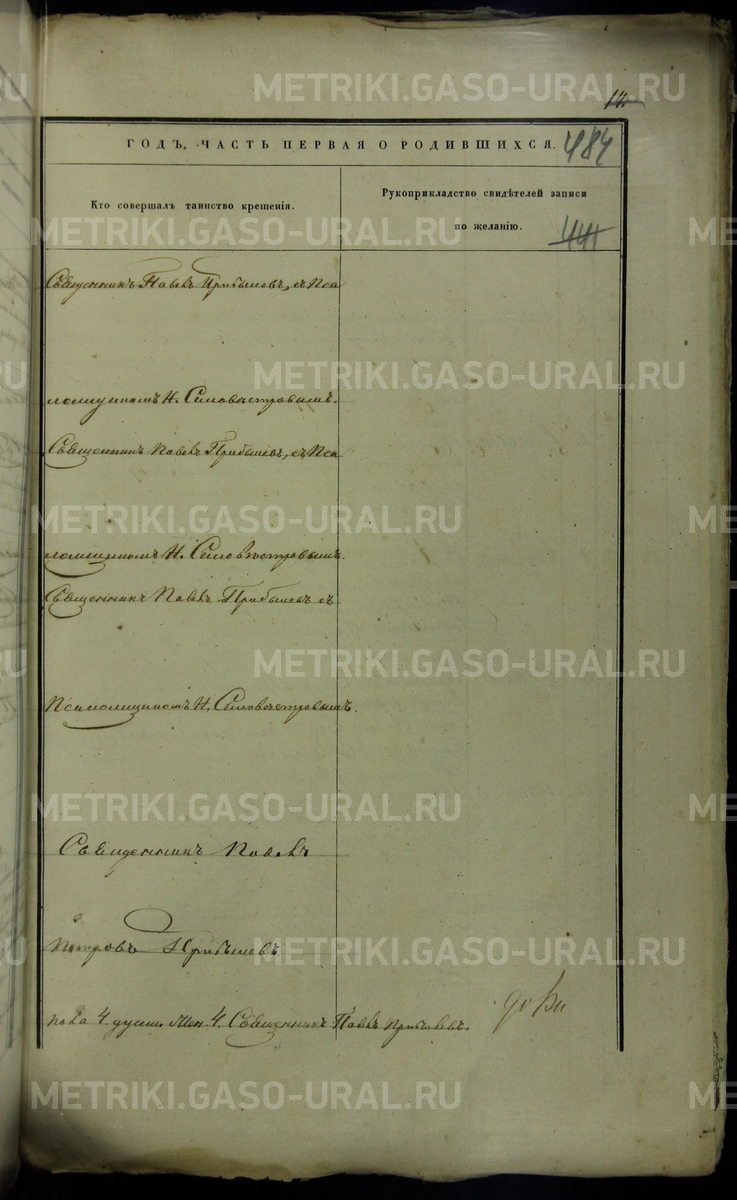 METRIKI.GASO-URAL.RU
14.
ГОДЪ, ЧАСТЬ ПЕРВАЯ О РОДИВШИХСЯ.
484
Кто совершалъ таинство крещенія.
Рукоприкладство свидѣтелей записи
по желанію.
441
Священникъ Павелъ Прибылевъ, съ Пса
ломщикомъ Н. Силовѣстровымъ.
Священникъ Павелъ Прибылевъ, съ Пса
ломщикомъ Н. Силовѣстровымъ.
Священникъ Павелъ Прибылевъ съ
Псаломщикомъ Н. Силовѣстровымъ.
Священникъ Павелъ
Петровъ Прибылевъ
4. Священникъ Павелъ Прибылевъ.